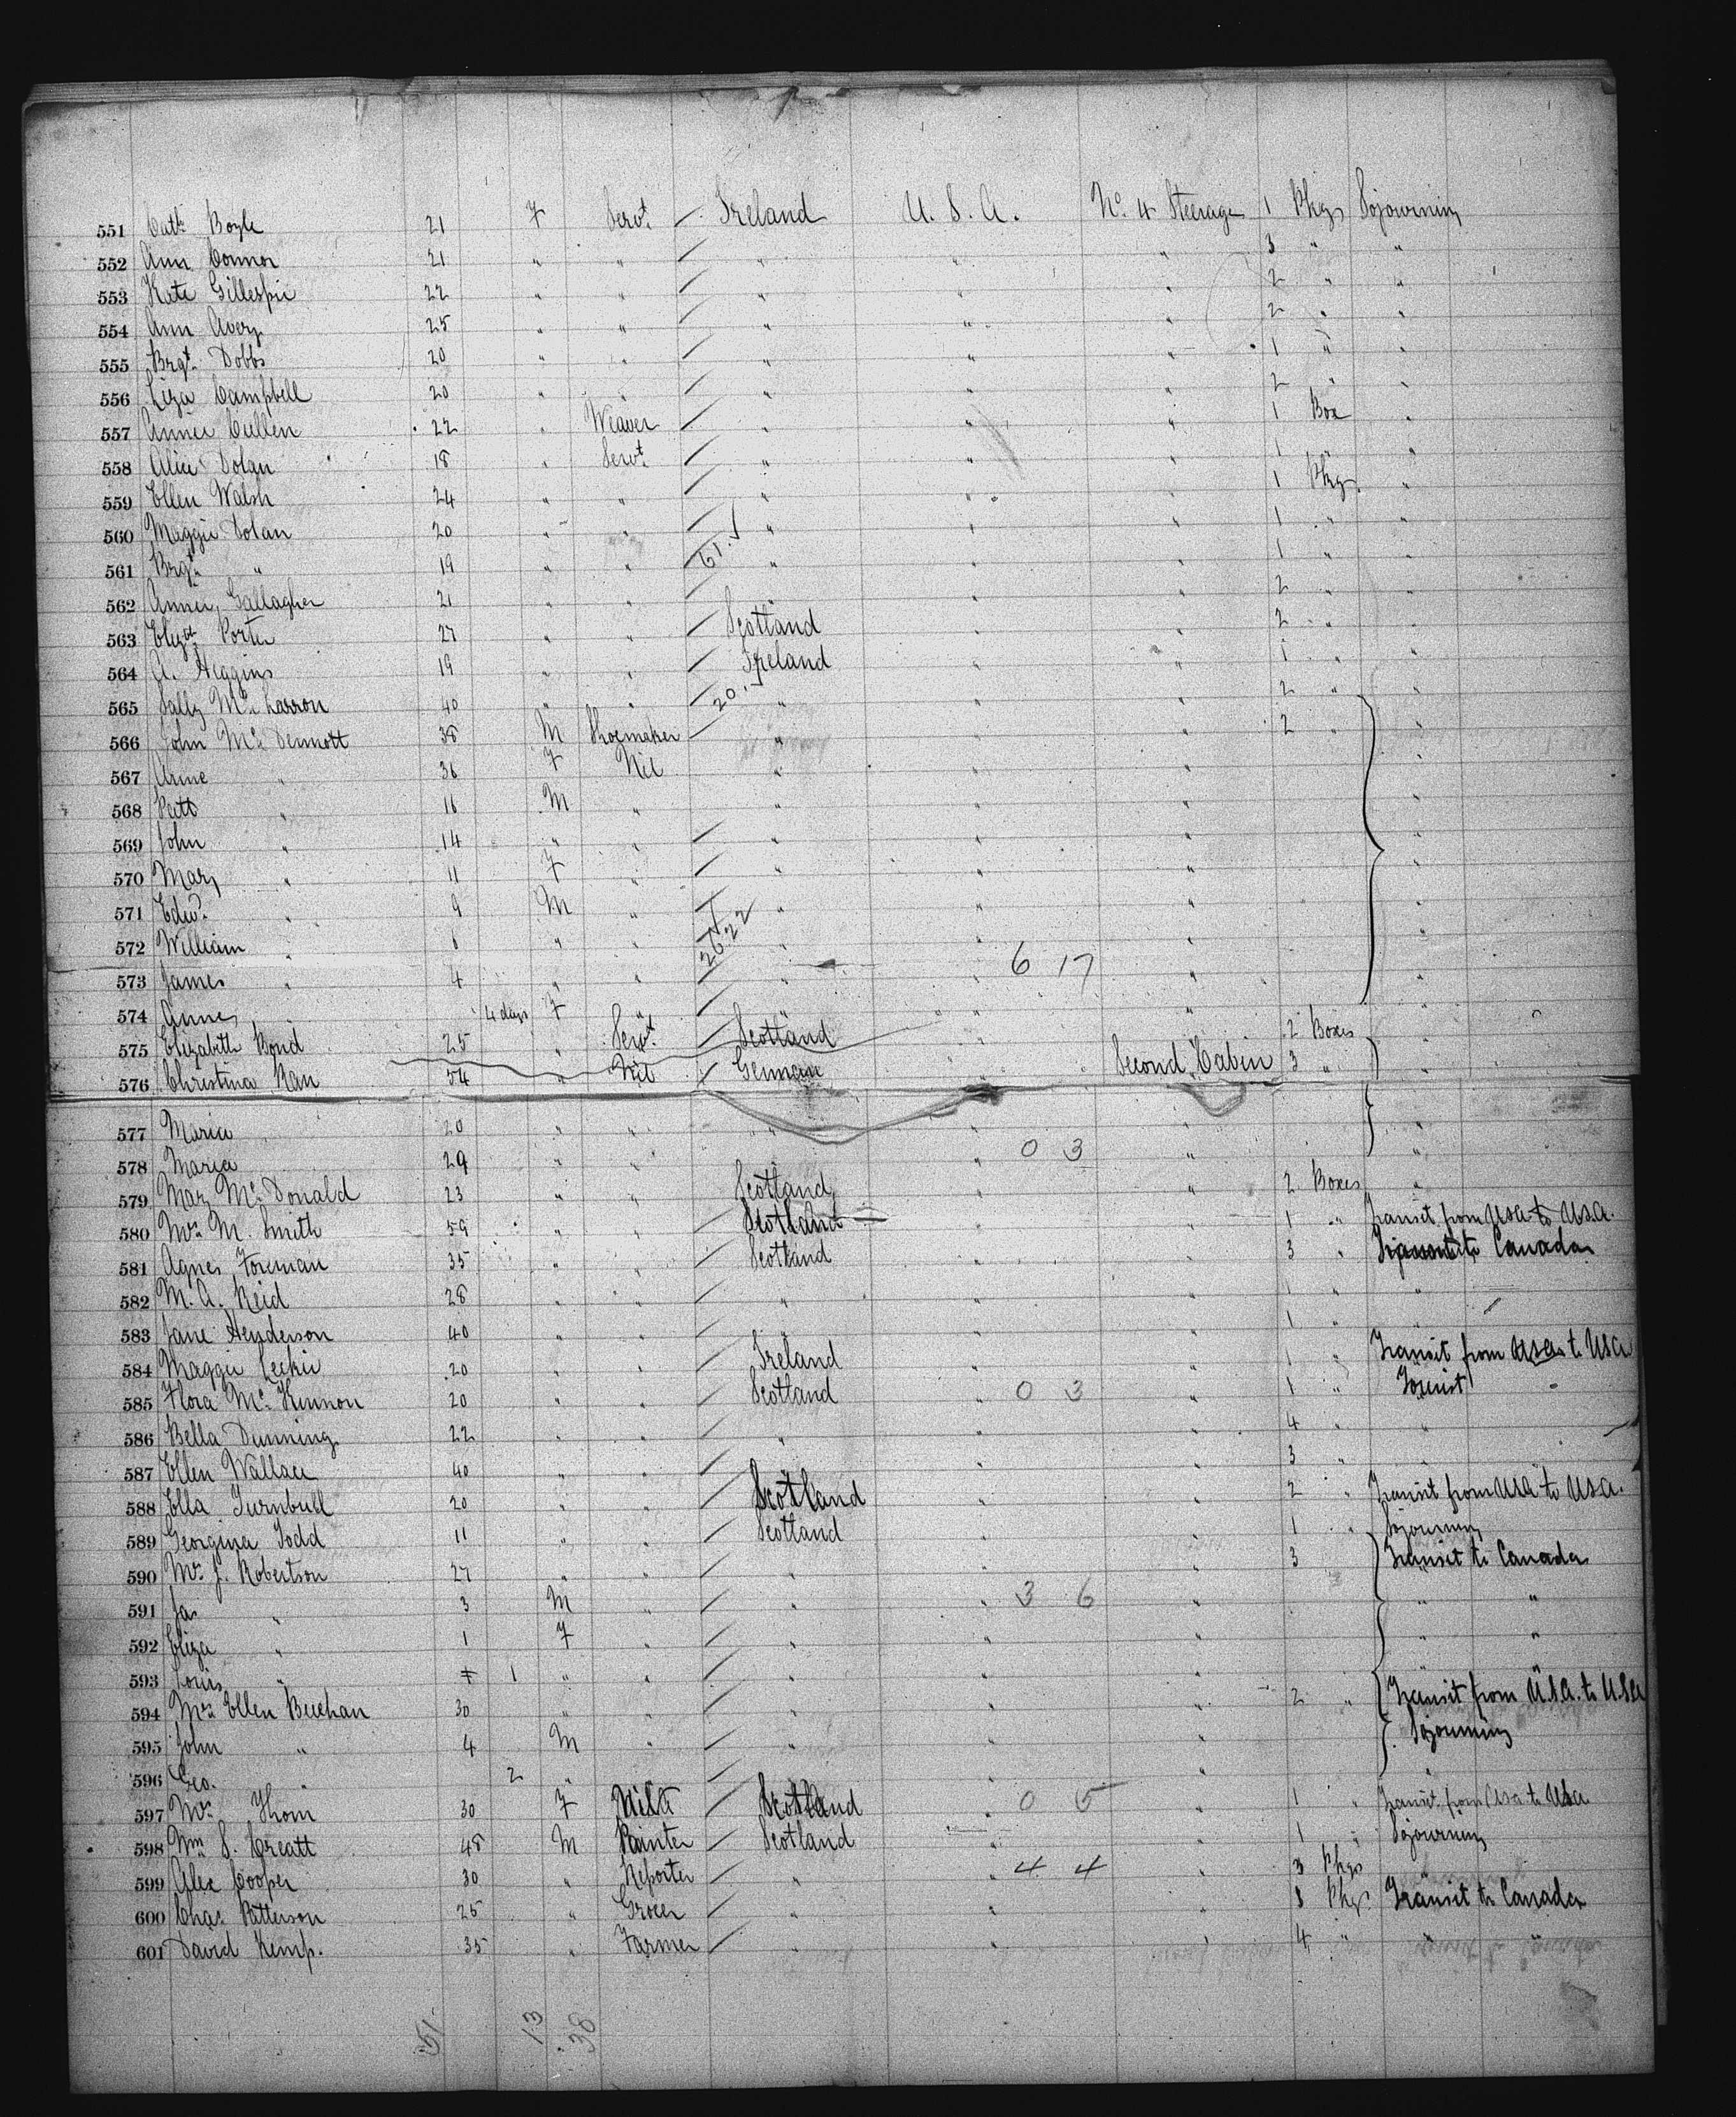 551 Cath. Boyle 21 F Servt. Ireland U. S. A. No. 4 Steerage 1 Pkgs Sojourning
552 Ann Connor 21 " " " " " 3 " "
553 Kate Gillespie 22 " " " " " 2 " "
554 Ann Avery 25 " " " " " 2 " "
555 Brgt. Dobbs 20 " " " " " 1 " "
556 Liza Campbell 20 " " " " " 2 " "
557 Annie Cullen 22 " Weaver " " " 1 Box "
558 Alice Dolan 18 " Servt. " " " 1 " "
559 Ellen Walsh 24 " " " " " 1 Pkgs "
560 Maggie Dolan 20 " " " " " 1 " "
561 Brgt. " 19 " " 61. " " " 1 " "
562 Annie Gallagher 21 " " " " " 2 " "
563 Elizth. Porter 27 " " Scotland " " 2 " "
564 A. Higgins 19 " " Ireland " " 1 " "
565 Sally McLarron 40 " " 20. " " " 2 " "
566 John McDermott 38 M Shoemaker " " " 2 " "
567 Anne " 36 F Nil " " " "
568 Patk " 16 M " " " " "
569 John " 14 " " " " " "
570 Mary " 11 F " " " " "
571 Edwd. " 9 M " " " " "
572 William " 6 " " 26.22 " " " "
573 James " 4 " " " " 6 17 " "
574 Annie " 4 days F " " " " "
575 Elizabeth Bond 25 " Servt. Scotland " " 2 Boxes "
576 Christina Rau 54 " Nil German " Second Cabin 3 " "
577 Maria 20 " " " " " "
578 Maria 29 " " " " 0 3 " "
579 Mary McDonald 23 " " Scotland " " 2 Boxes "
580 Mrs. M. Smith 59 " " Scotland " " 1 " Transit from USA to USA.
581 Agnes Foreman 35 " " Scotland " " 3 " Transit to Canada
582 M. A. Reid 28 " " " " " 1 " "
583 Jane Henderson 40 " " " " " 1 " "
584 Maggie Leckie 20 " " Ireland " " 1 " Transit from USA to USA
585 Flora McKinnon 20 " " Scotland " 0 3 " 1 " Tourist
586 Bella Dunning 22 " " " " " 4 " "
587 Ellen Wallace 40 " " " " " 3 " "
588 Ella Turnbull 20 " " Scotland " " 2 " Transit from USA to USA.
589 Georgina Todd 11 " " Scotland " " 1 " Sojourning
590 Mrs. J. Robertson 27 " " " " " 3 Transit to Canada
591 Jas " 3 M " " " 3 6 " " "
592 Eliza " 1 F " " " " " "
593 Louis " 1 " " " " " " "
594 Mrs Ellen Buchan 30 " " " " " 2 " Transit from U.S.A. to USA
595 John " 4 M " " " " Sojourning
596 Geo. " 2 " " " " " "
597 Mrs Thom 30 F Scotland " 0 5 " 1 " Transit from USA to USA
598 Wm S. Creatt 48 M Painter Scotland " " 1 " Sojourning
599 Alex Cooper 30 " Reporter " " 4 4 " 3 Pkgs "
600 Chas. Patterson 25 " Grocer " " " 8 Pkgs. Transit to Canada
601 David Kemp. 35 " Farmer " " " 4 " " "
51 13 38